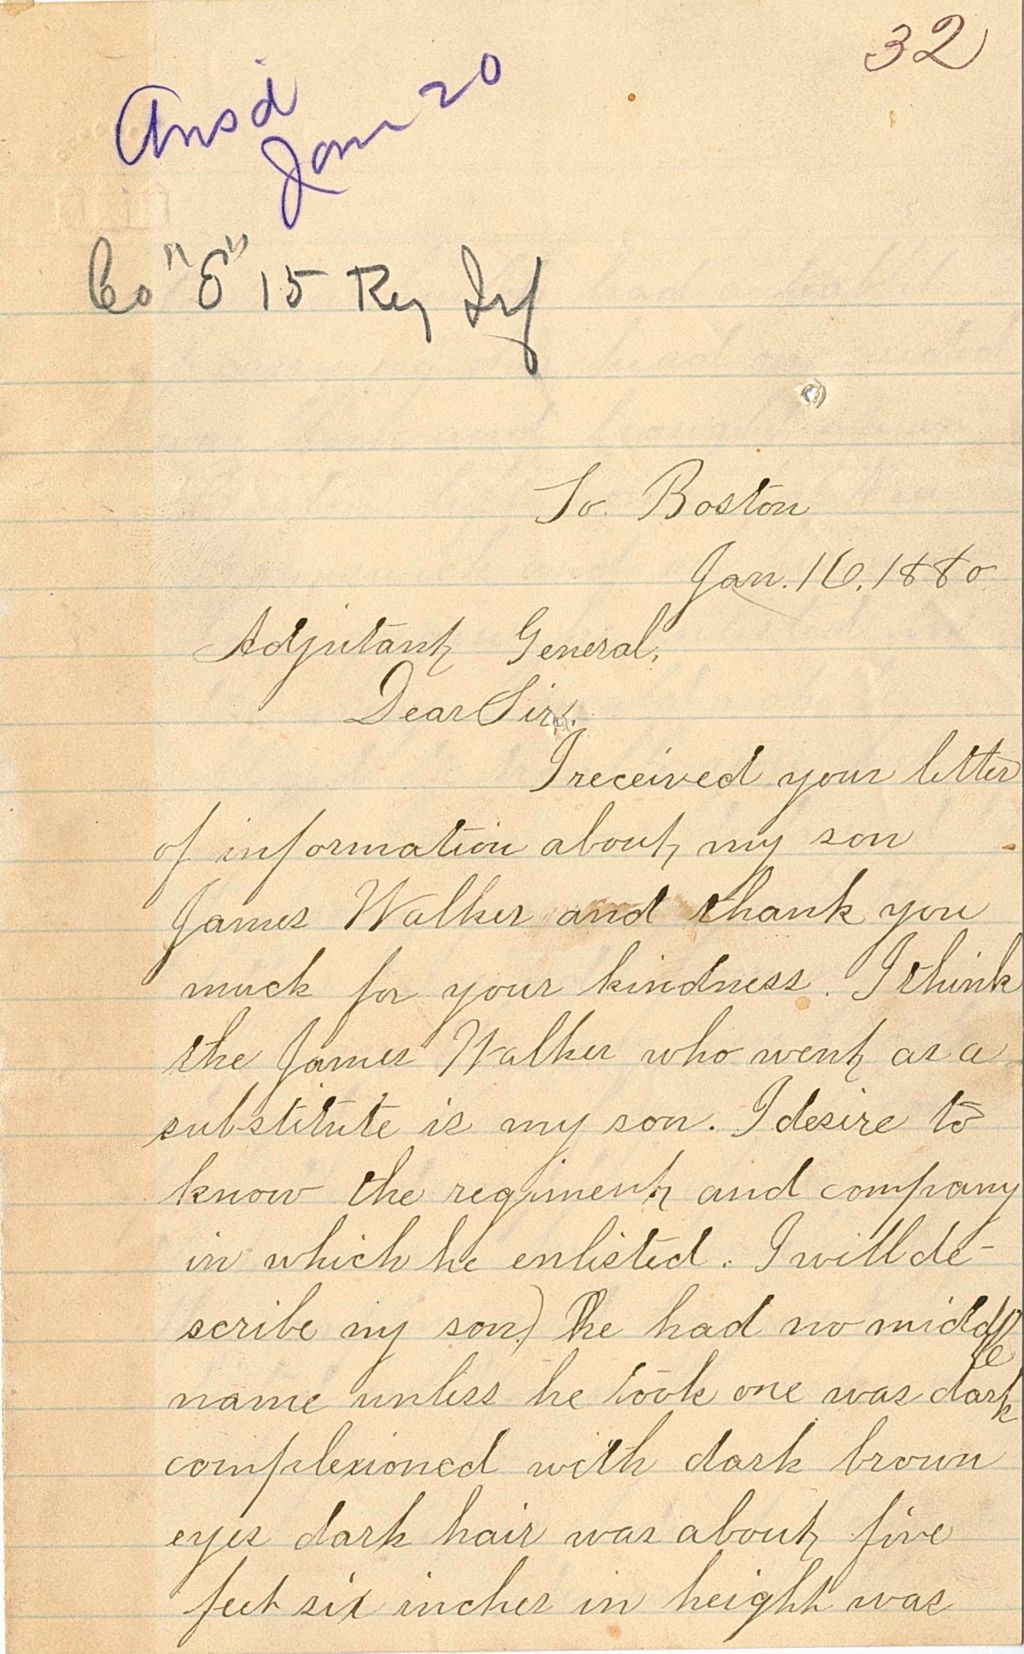 32
Ansd
Jan 20
Co "E" 15 Reg Inf
So. Boston
Jan. 16, 1880
Adjutant General,
Dear Sir,
I received your letter
of information about my son
James Walker and thank you
much for your kindness. I think
the James Walker who went as a
substitute is my son. I desire to
know the regiment and company
in which he enlisted. I will de-
scribe my son) he had no middle
name unless he took one was dark
complexioned with dark brown
eyes dark hair was about five
feet six inches in height was